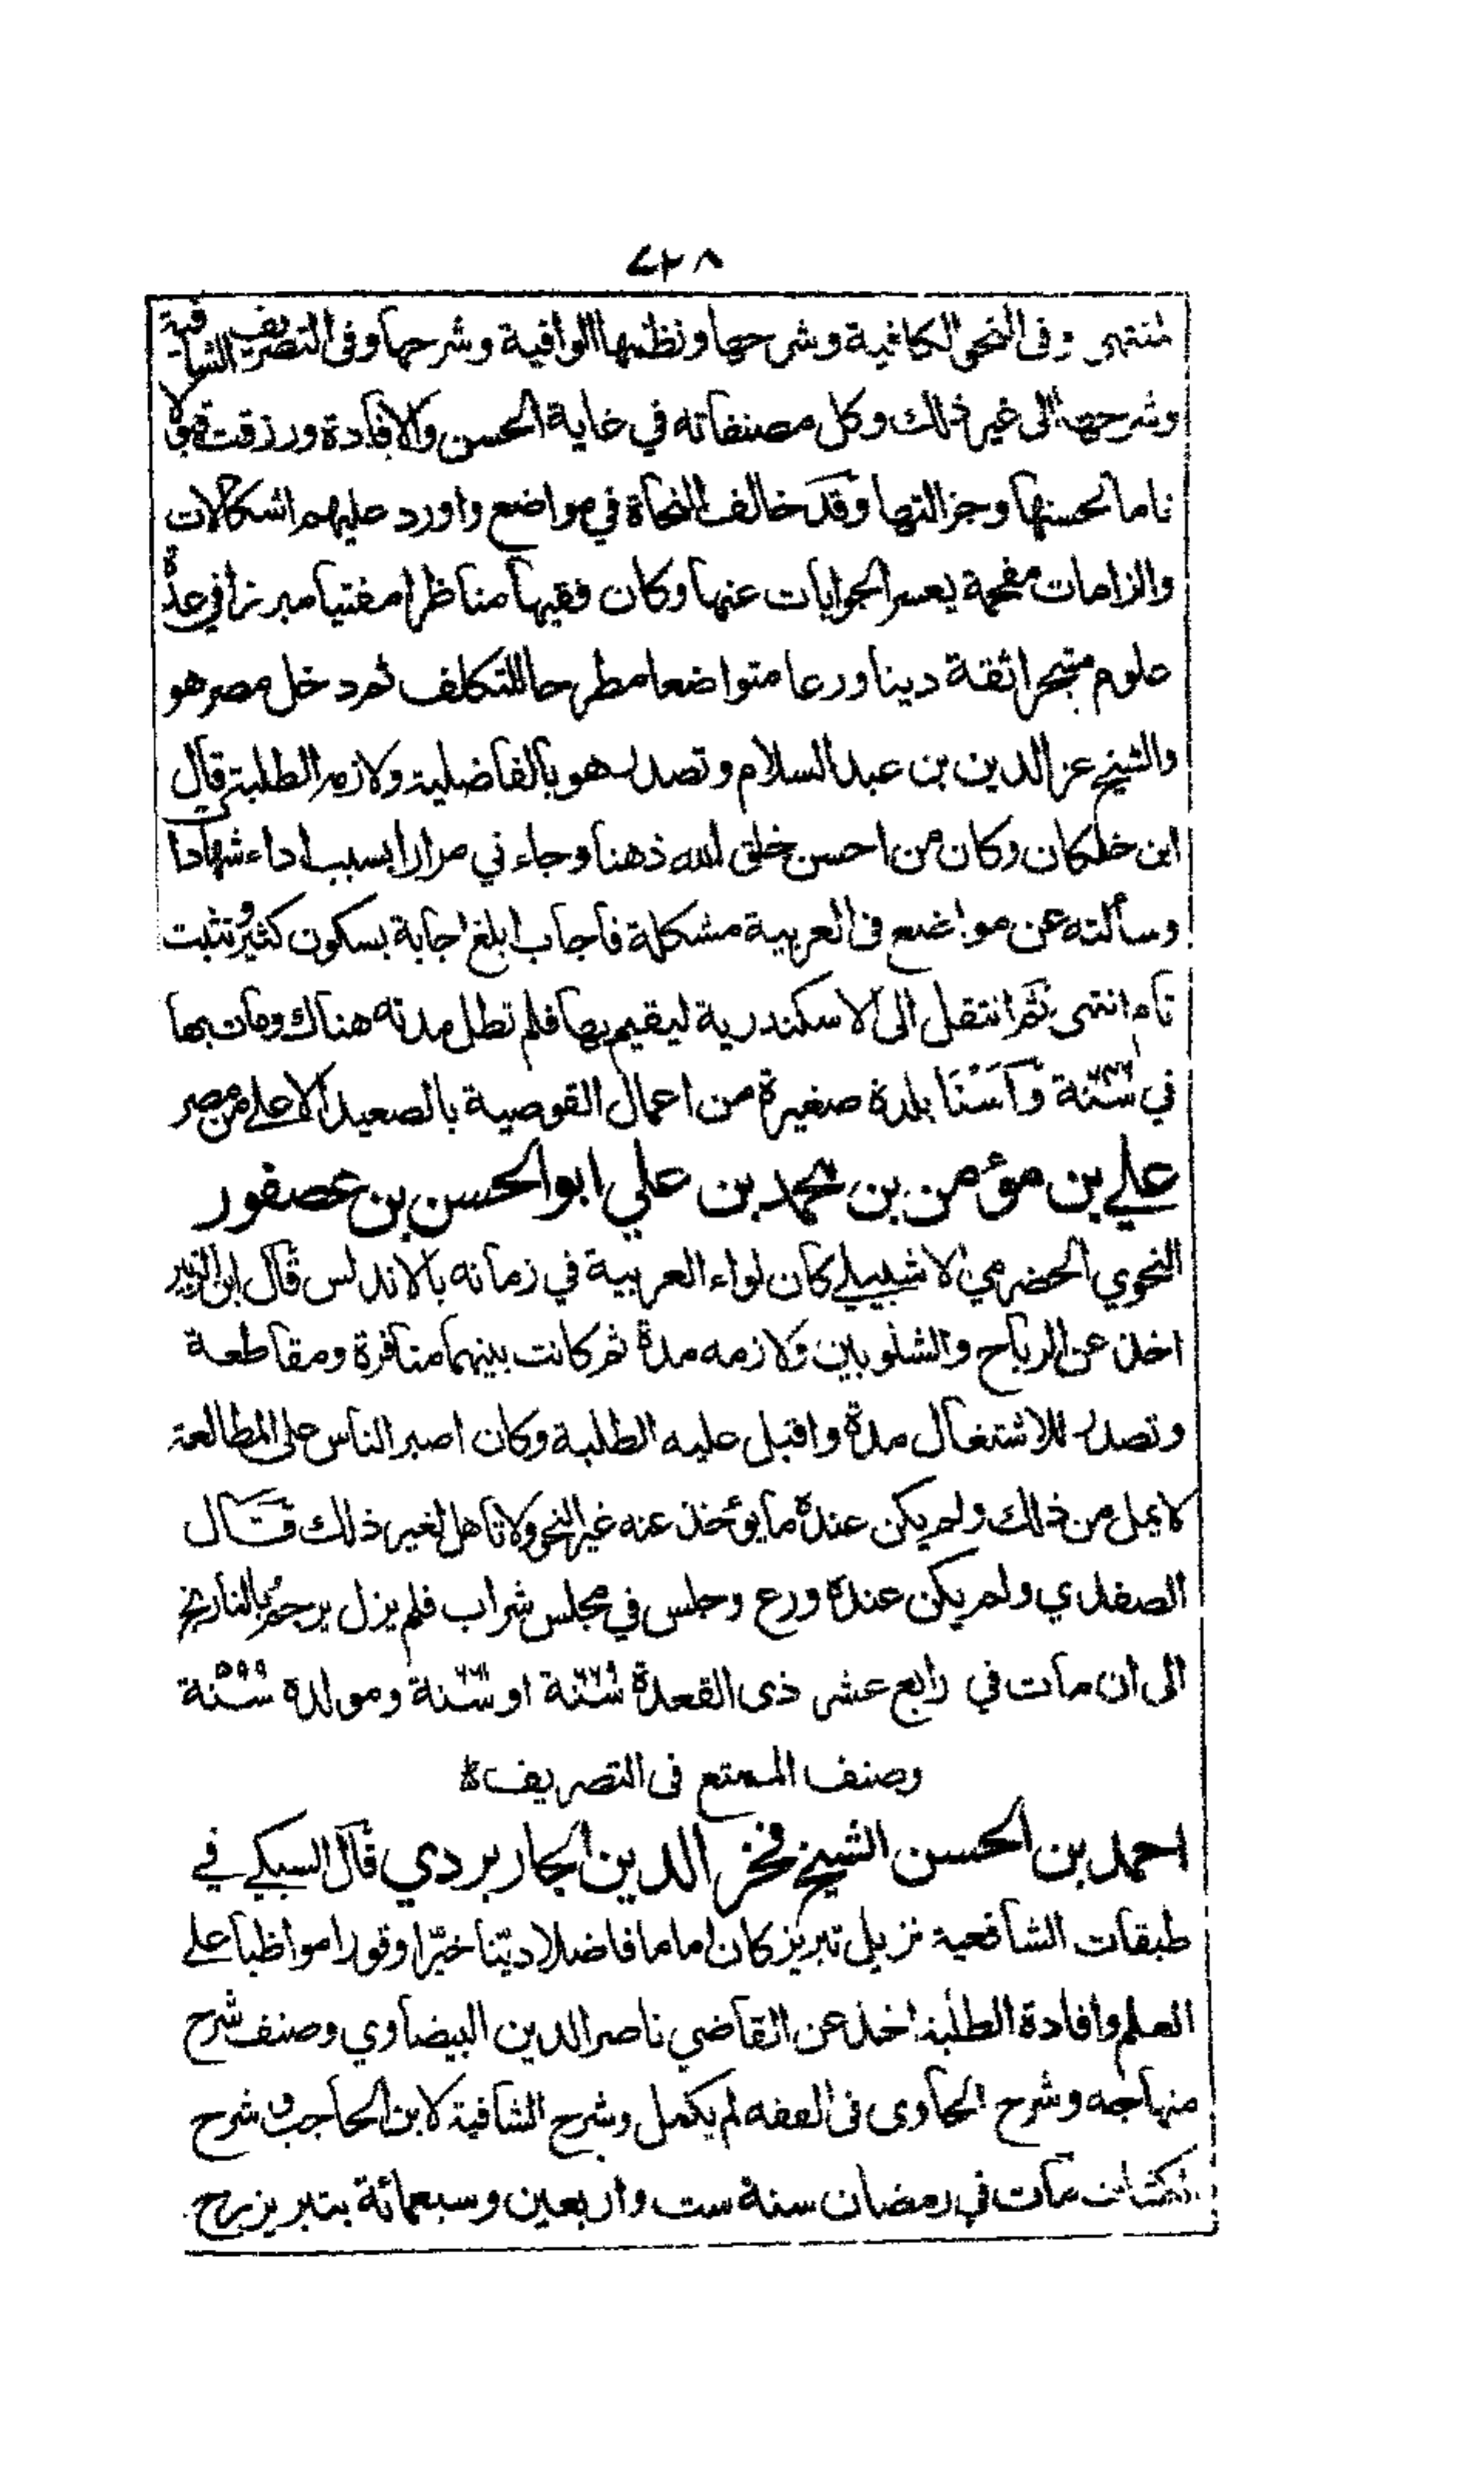 ٧٢٨
منتهى وفى النحو الكافية وشرحها ونظمها الوافية وشرحها وفى التصريف الشافية
وشرحها الى غير ذلك وكل مصنفاته في غاية الحسن والافادة ورزقت قبولا
تاما لحسنها وجزالتها وقد خالف النحاة في مواضع واورد عليهم اشكالات
والزامات مفحمة يعسر الجوابات عنها وكان فقيها مناظرا مفتيا مبرزا في عدة
علوم متبحرا ثقة دينا ورعا متواضعا مطرحا للتكلف ثم دخل مصر هو
والشيخ عز الدين بن عبد السلام وتصدر هو بالفاضلية ولازمه الطلبة قال
ابن خلكان وكان من احسن خلق الله ذهنا وجاءني مرارا بسبب اداء شهادا
وسألته عن مواضع فى العربية مشكلة فاجاب ابلغ اجابة بسكون كثير وتثبت
تام انتهى ثم انتقل الى الاسكندرية ليقيم بها فلم تطل مدته هناك ومات بها
في سنة ٦٤٦ وآسْنَا بلدة صغيرة من اعمال القوصية بالصعيد الاعلى من مصر
علي بن مؤمن بن محمد بن علي ابو الحسن بن عصفور
النحوي الحضرمي الاشبيلي كان لواء العربية في زمانه بالاندلس قال ابن الزبير
اخذ عن الرباح والشلوبين ولازمه مدة ثم كانت بينهما منافرة ومقاطعة
وتصدر للاشتغال مدة واقبل عليه الطلبة وكان اصبر الناس على المطالعة
لا يمل من ذلك ولم يكن عنده ما يؤخذ عنه غير النحو ولا تاهل لغير ذلك قال
الصفدي ولم يكن عنده ورع وجلس في مجلس شراب فلم يزل يرجم بالنارنج
الى ان مات في رابع عشر ذى القعدة سنة ٦٦٩ او سنة ٦٦٣ ومولده سنة ٥٩٩
وصنف الممتع فى التصريف ة
احمد بن الحسن الشيخ فخر الدين الجاربردي قال السبكي في
طبقات الشافعية نزيل تبريز كان اماما فاضلا ديّنا خيّرا وقورا مواظبا على
العلم وافادة الطلبة اخذ عن القاضي ناصر الدين البيضاوي وصنف شرح
منهاجه وشرح الحاوى فى الفقه لم يكمل وشرح الشافية لابن الحاجب وشرح
الكشاف مات في رمضان سنة ست واربعين وسبعمائة بتبريز رح